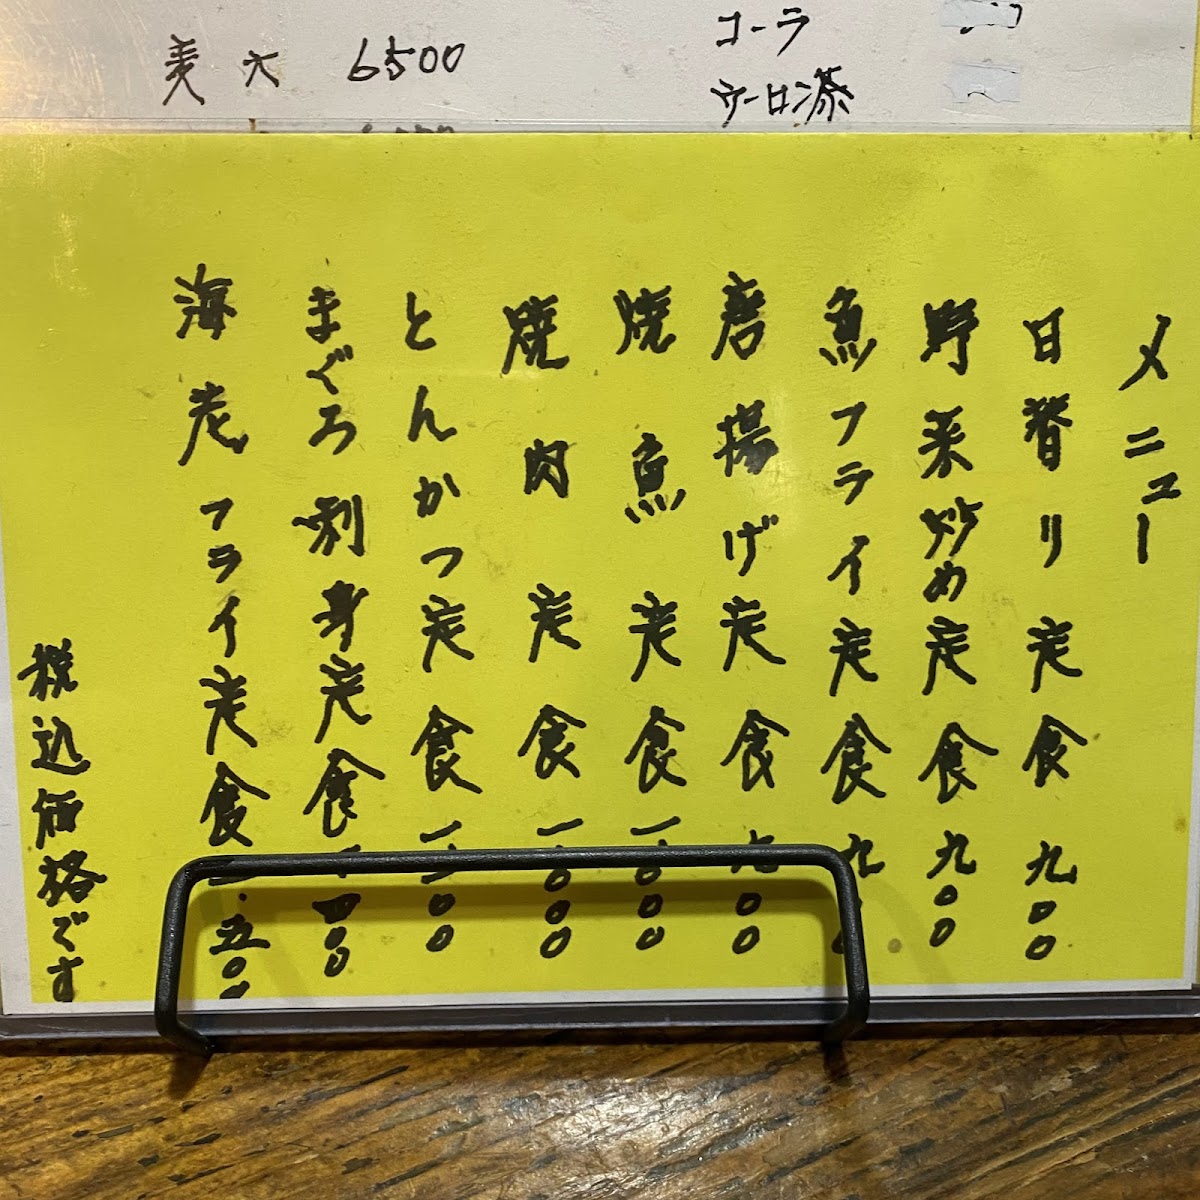 麦 大 6500
コーラ
ウーロン茶
メニュー
日替り定食 九〇〇
野菜炒め定食 九〇〇
魚フライ定食 九
唐揚げ定食 九〇〇
焼魚定食 一、〇〇〇
焼肉定食 一、〇〇〇
とんかつ定食 一、一〇〇
まぐろ刺身定食 一、四〇〇
海老フライ定食 五〇〇
税込価格です